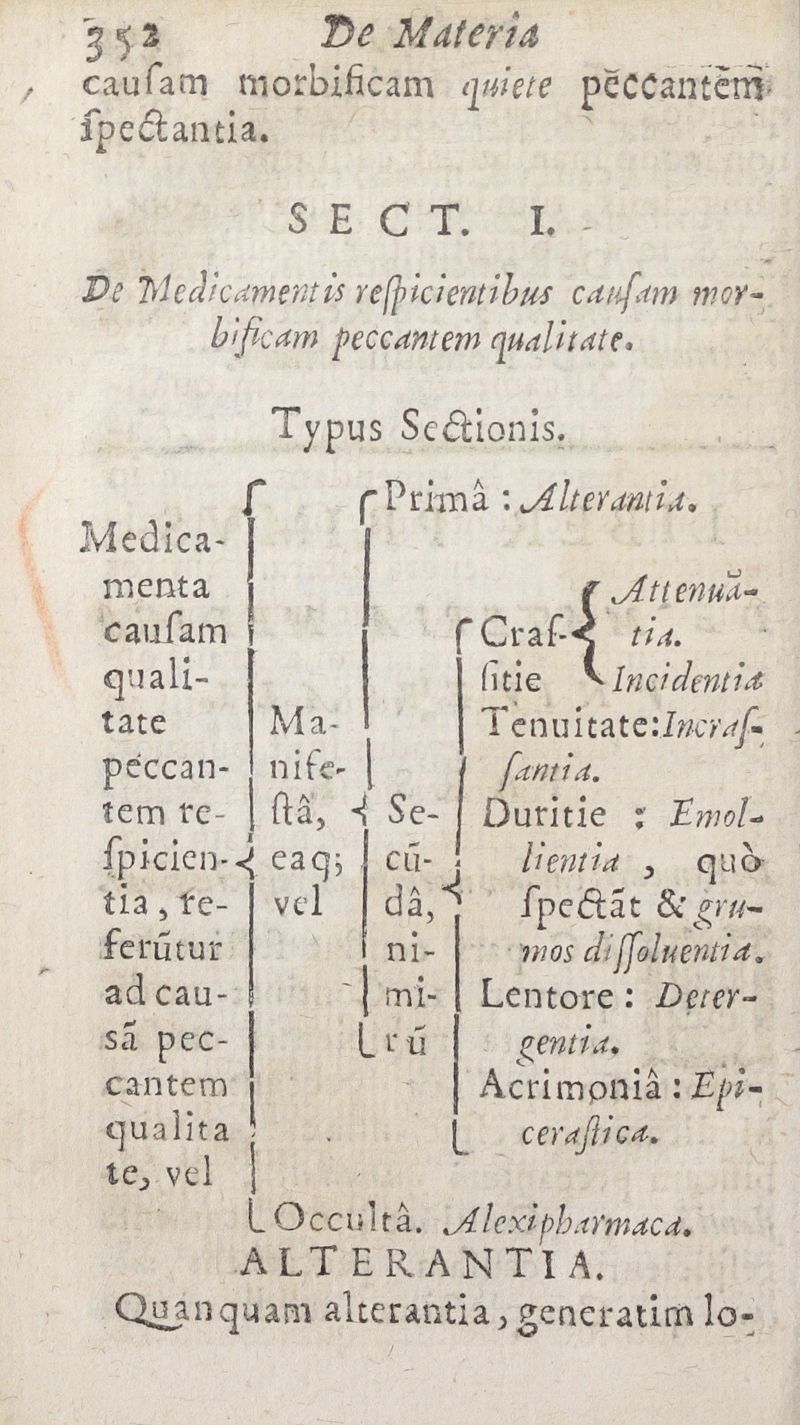 352 De Materia
cauſam morbificam quiete pēccantēm
ſpectantia.
SECT. I.
De Medicamentis reſpicientibus cauſam mor-
bificam peccantem qualitate.
Typus Sectionis.
Medica-
menta
cauſam
quali-
tate
peccan-
tem re-
ſpicien-
tia, re-
ferūtur
ad cau-
sā pec-
cantem
qualita
te, vel
Ma-
nife-
ſtâ,
eaq;
vel
Primâ : Alterantia.
Se-
cū-
dâ,
ni-
mi-
rū
Craſ-
ſitie
Attenuā-
tia.
Incidentia
Tenuitate: Incraſ-
ſantia.
Duritie : Emol-
lientia, quò
ſpectāt & gru-
mos diſſoluentia.
Lentore : Deter-
gentia.
Acrimoniâ : Epi-
ceraſtica.
Occultâ. Alexipharmaca.
ALTERANTIA.
Quanquam alterantia, generatim lo-